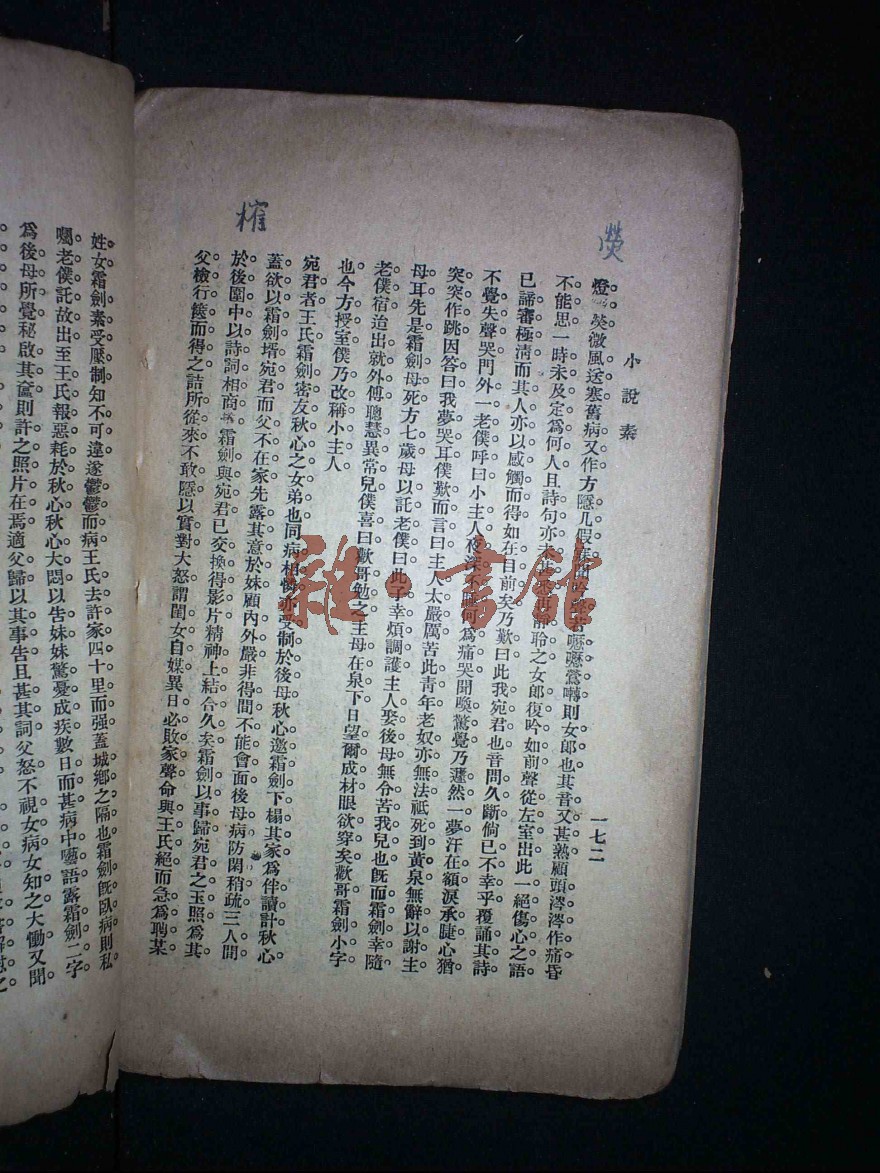 熒
榷
小說素
一七二
燈熒熒微風送寒舊病又作方隱几假寐聞吟聲若嚦嚦鶯囀則女郎也其音又甚熟顧頭涔涔作痛昏
不能思一時未及定為何人且詩句亦未聆之女郎復吟如前聲從左室出此一絕傷心之語
已諦審極淸而其人亦以感觸而得如在目前矣乃歎曰此我宛君也音問久斷倘已不幸乎覆誦其詩
不覺失聲哭門外一老僕呼曰小主人夜深不睡何爲痛哭聞喚驚覺乃蘧然一夢汗在額淚承睫心猶
突突作跳因答曰我夢哭耳僕歎而言曰主人太嚴厲苦此靑年老奴亦無法祗死到黃泉無辭以謝主
母耳先是霜劍母死方七歲母以託老僕曰此子幸煩調護主人娶後母無令苦我兒也旣而霜劍幸隨
老僕宿迨出就外傅聰慧異常兒僕喜曰歡哥勉之王母在泉下日望爾成材眼欲穿矣歡哥霜劍小字
也今方授室僕乃改稱小主人
宛君者王氏霜劍密友秋心之女弟也同病相憐亦受制於後母秋心邀霜劍下榻其家爲伴讀計秋心
蓋欲以霜劍壻宛君而父不在家先露其意於妹顧內外嚴非得間不能會面後母病防閑稍疏三人間
於後園中以詩詞相商霜劍與宛君已交換得影片精神上結合久矣霜劍以事歸宛君之玉照爲其
父檢行篋而得之詰所從來不敢隱以實對大怒謂閨女自媒異日必敗家聲命與王氏絕而急爲聘某
姓女霜劍素受壓制知不可違遂鬱鬱而病王氏去許家四十里而强蓋城鄉之隔也霜劍旣臥病則私
囑老僕託故出至王氏報惡耗於秋心秋心大悶以吿妹妹驚憂成疾數日而甚病中囈語露霜劍二字
爲後母所覺秘啟其奩則許之照片在焉適父歸以其事吿且甚其詞父怒不視女病女知之大慟又聞